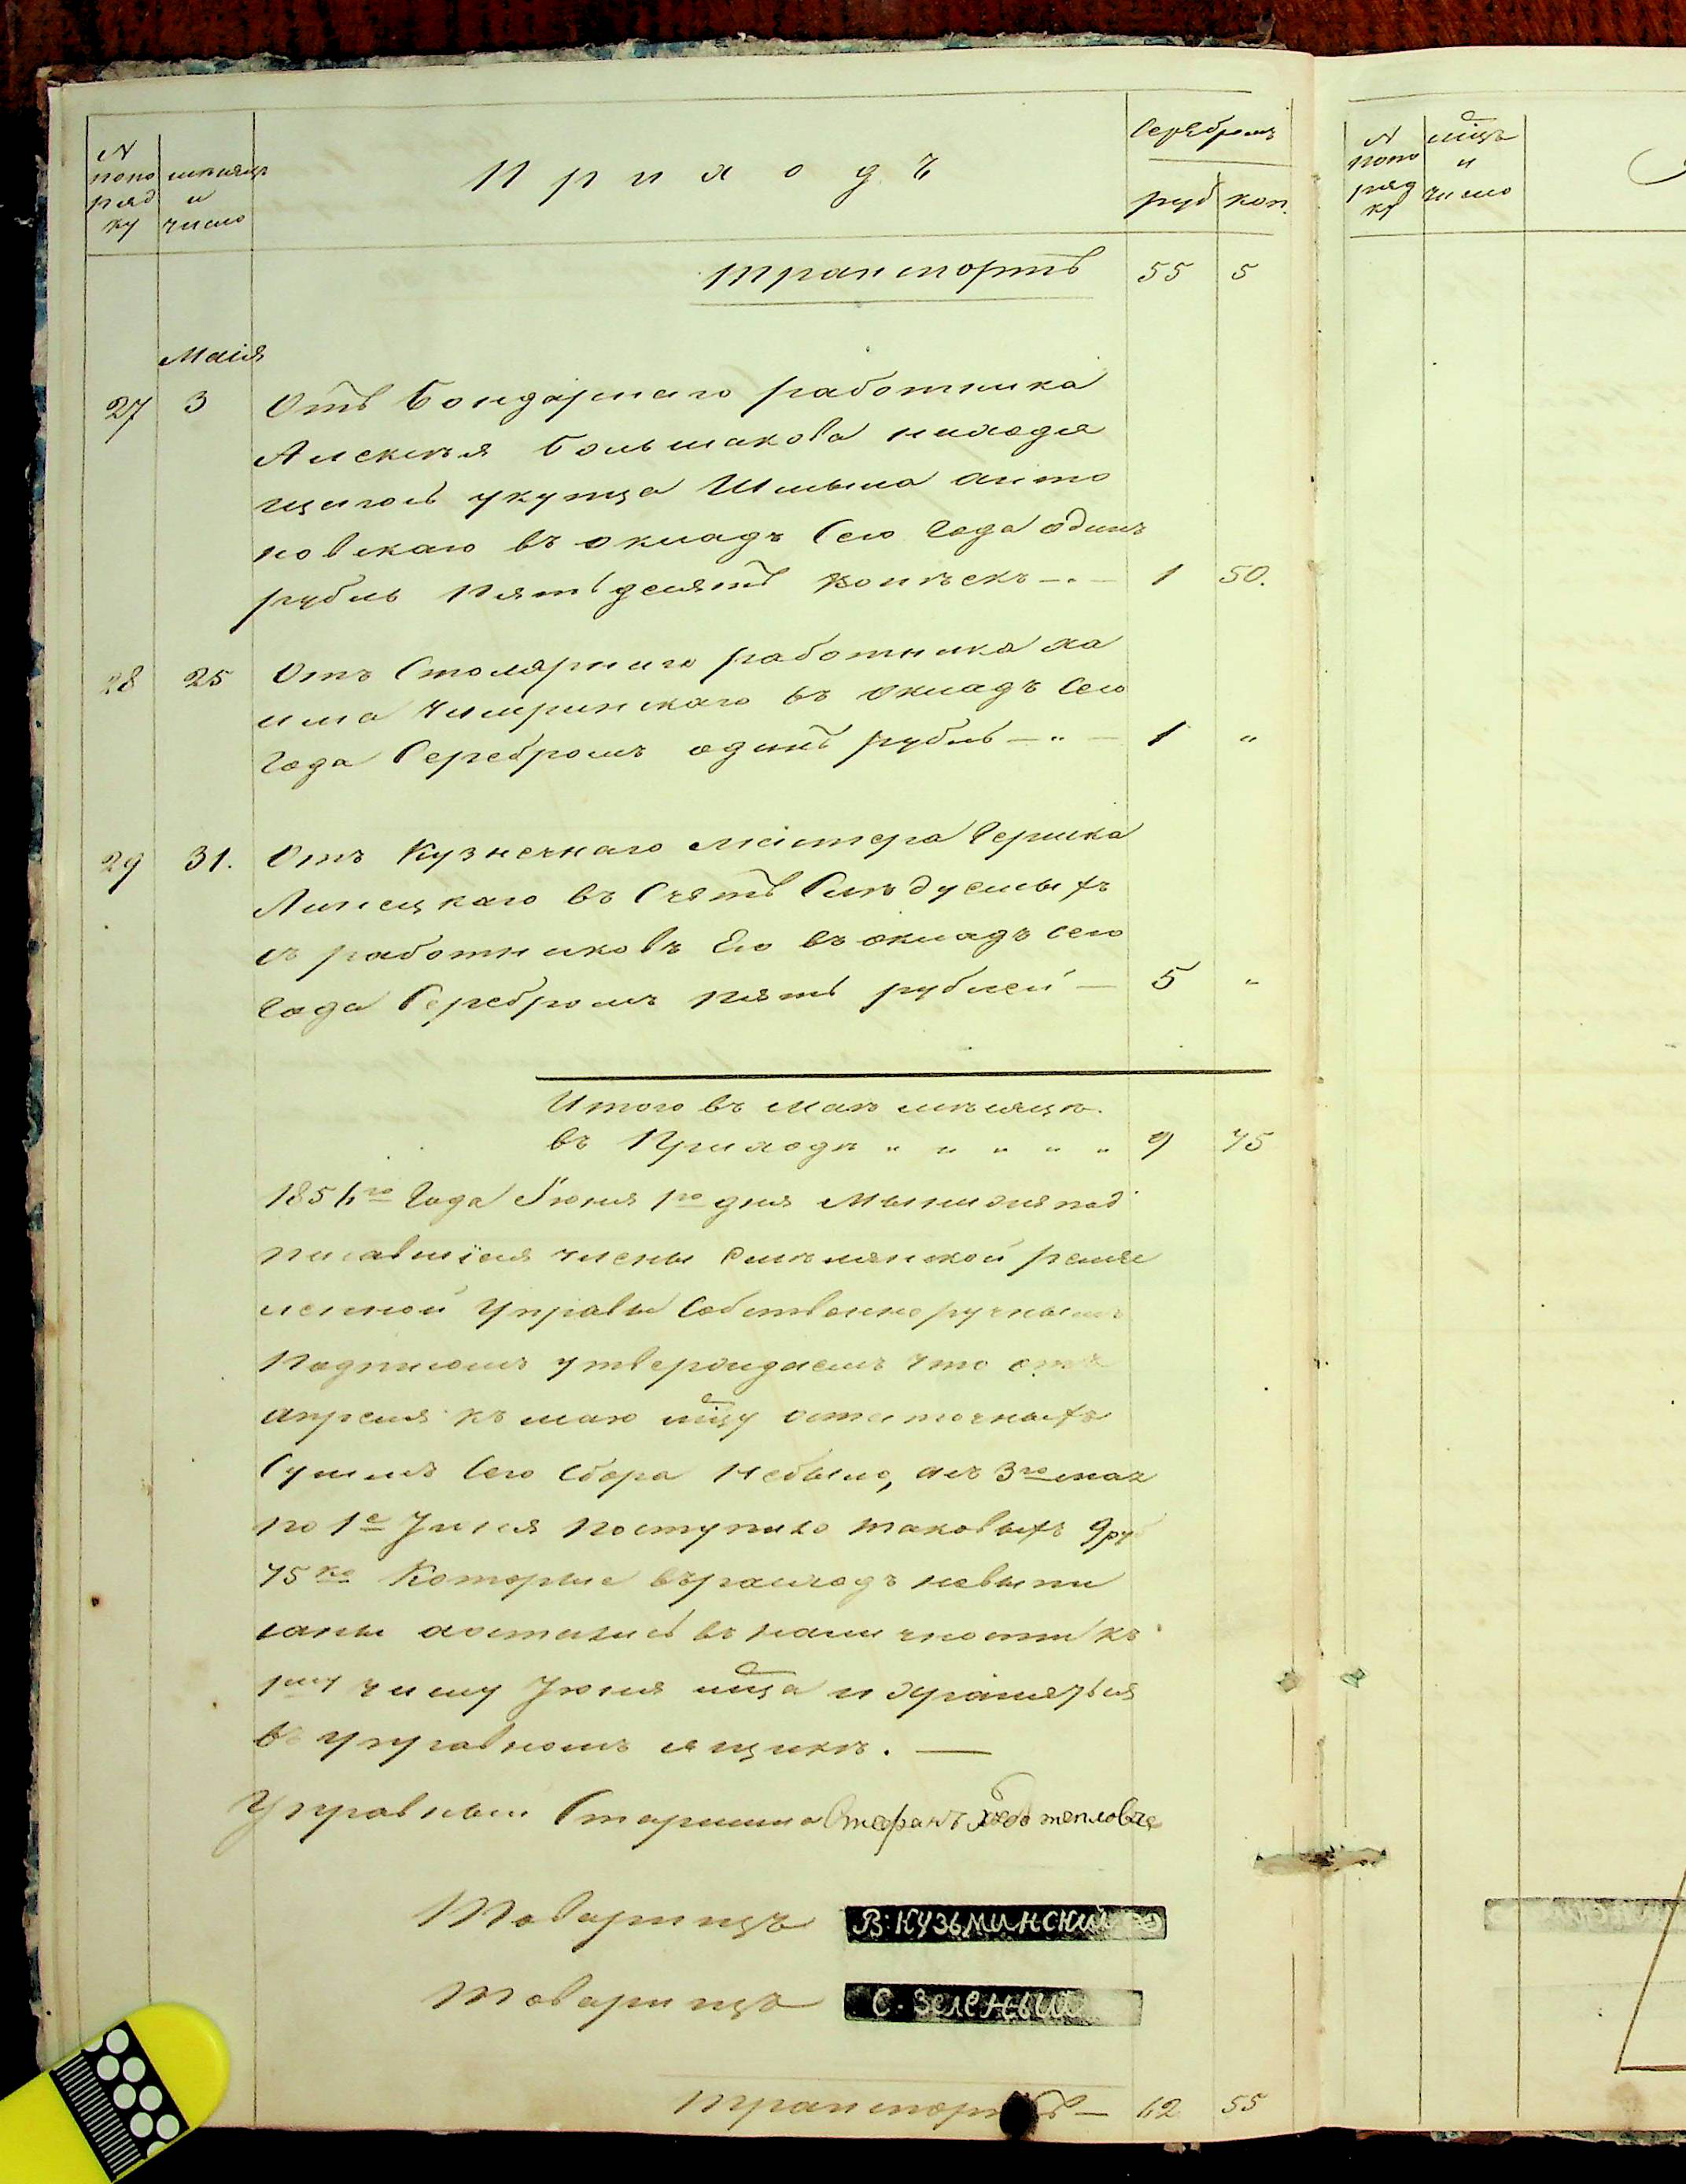 N попо рядку
мѣсяцъ и число
Приходъ
Серебромъ
руб коп.
Транспортъ 55 5
Маія
27 3 Отъ Бондарнаго работника
Алексѣя Большакова находя
щагось укупца Шмыла анто
новскаго въ окладъ Сего Года одинъ
рубль Пятьдесятъ копѣекъ 1 50.
28 25 Отъ Столярнаго работника ха
има въ окладъ Сего
Года Серебромъ одинъ рубль 1 "
29 31. Отъ Кузнечнаго Мастера Гершка
Липецкаго въ Счетъ Слѣдуемыхъ
съ работниковъ Его въ окладъ сего
Года Серебромъ пять рублей — 5 "
Итого въ маѣ мѣсяцѣ.
въ Приходѣ " " " " " 9 75
1854го Года Іюня 1го дня Мы нижепод
писавшіеся члены Смѣлянской ремес
ленной Управы Собственноручнымъ
Подписомъ утверждаемъ что отъ
апреля къ маю мцу остаточныхъ
Суммъ Сего Сбора небыло, а съ 3го мая
по 1е Іюня поступило таковыхъ 9 ру
75 ко Которые въ расходъ невыпи
саны а остались въ наличности къ
1му числу Іюня мца и храняться
въ управномъ ящикѣ. —
Управный Старшина Стефанъ
Товарищъ В: Кузьминский
Товарищъ С. Зеленый
Транспортъ — 62 55
N попо рядку
мцъ и число